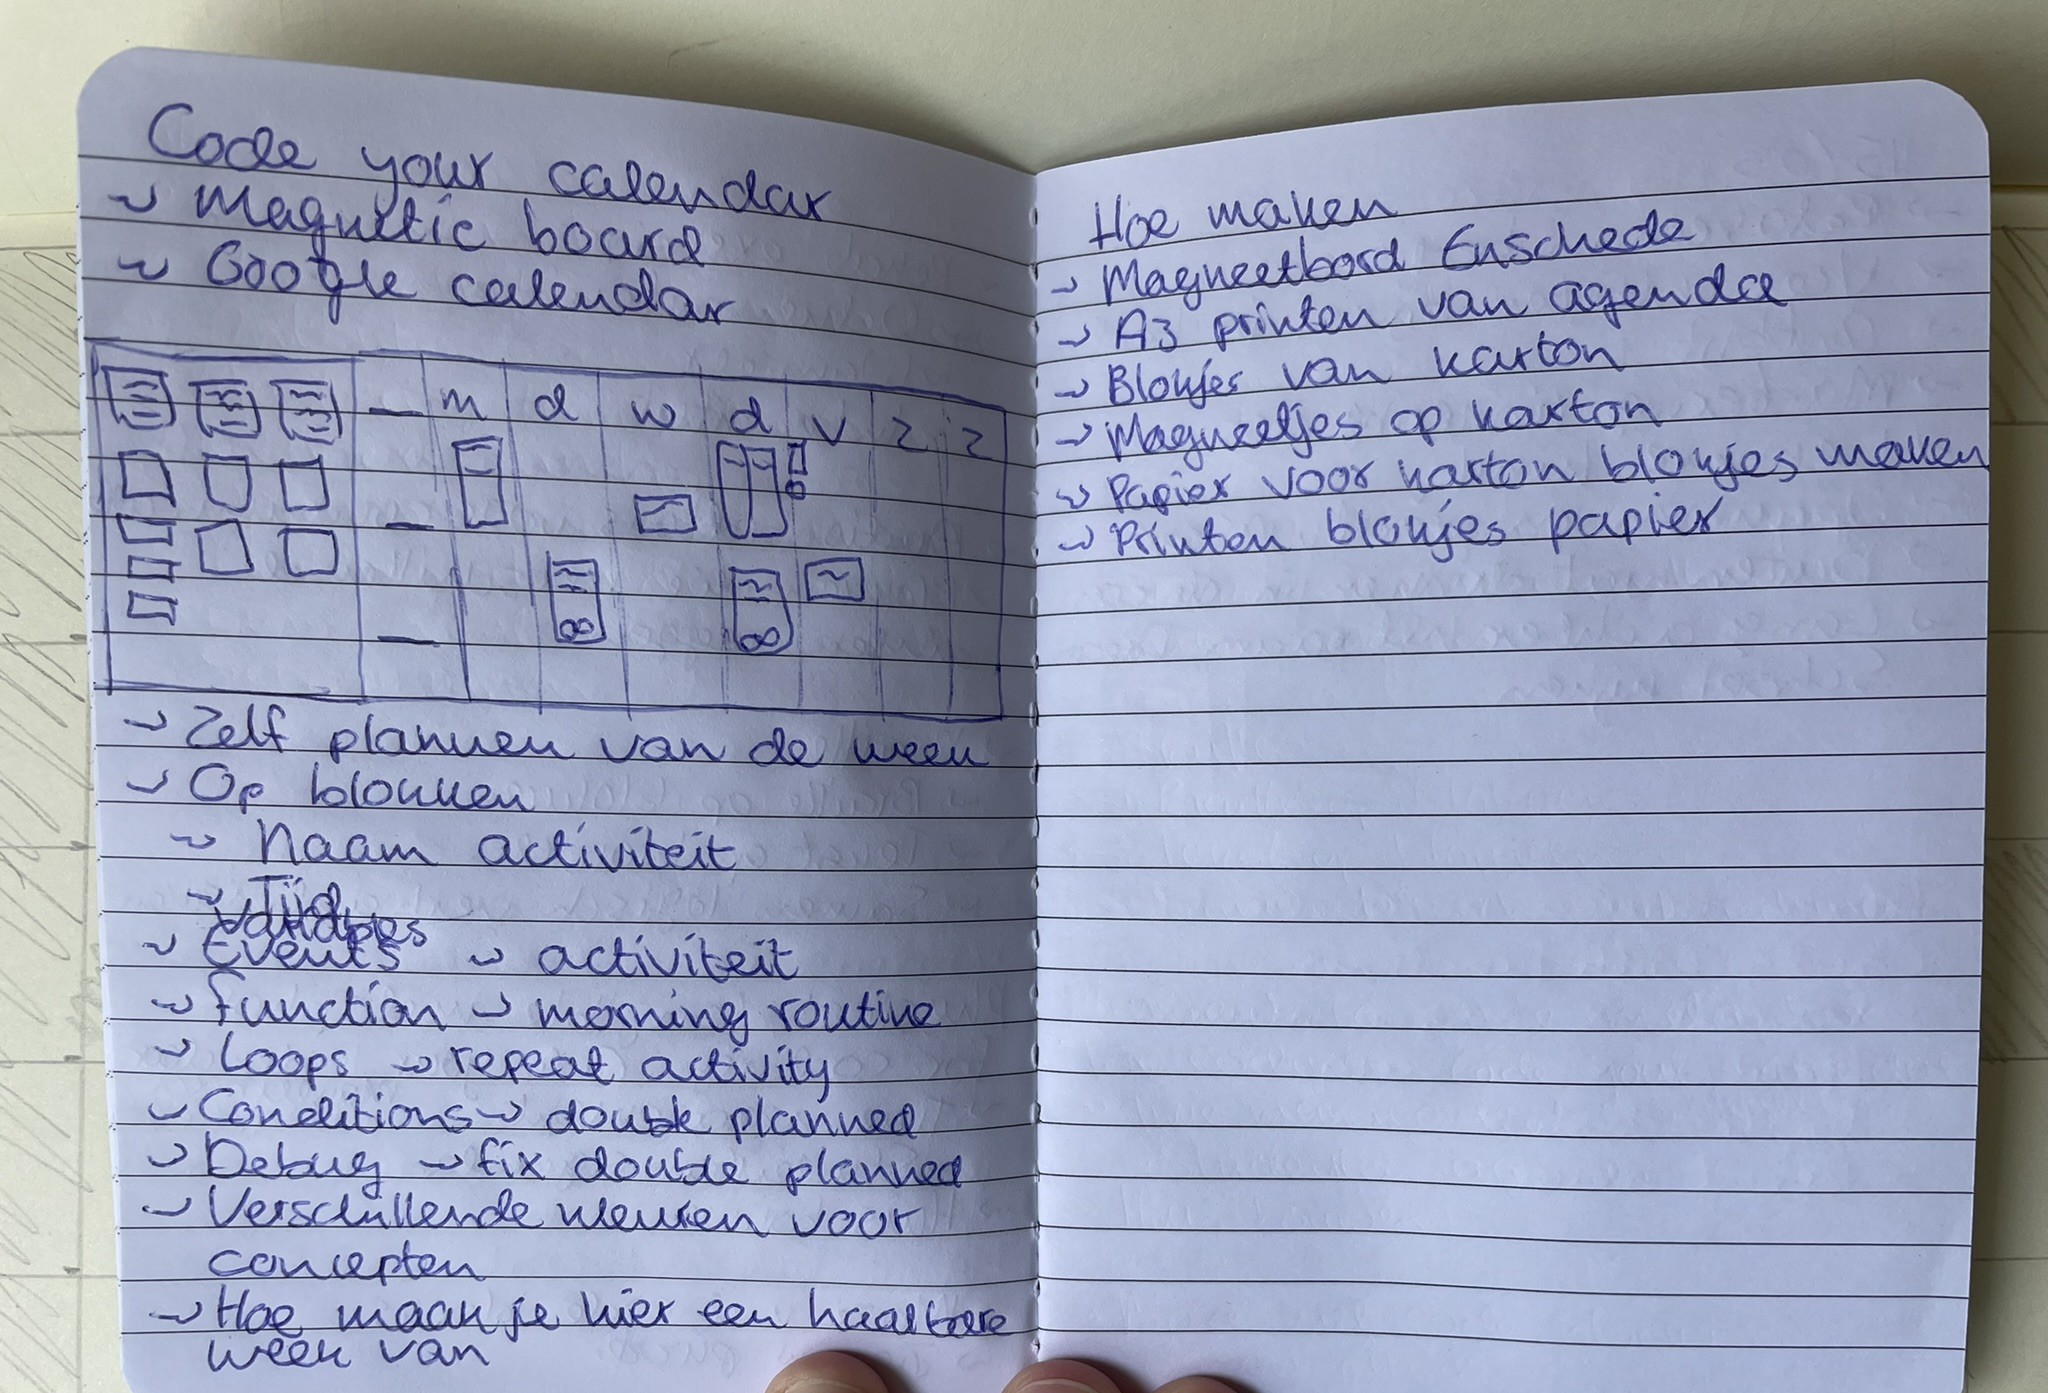 Code your calendar
→ Magnetic board
→ Google calendar
m d w d v z z
→ Zelf plannen van de week
→ Op blokken
→ Naam activiteit
→ Tijd
→ Events → activiteit
→ function → morning routine
→ Loops → repeat activity
→ Conditions → double planned
→ Debug → fix double planned
→ Verschillende kleuren voor
concepten
→ Hoe maak je hier een haalbare
week van
Hoe maken
→ Magneetbord Enschede
→ A3 printen van agenda
→ Blokjes van karton
→ Magneetjes op karton
→ Papier voor karton blokjes maken
→ Printen blokjes papier